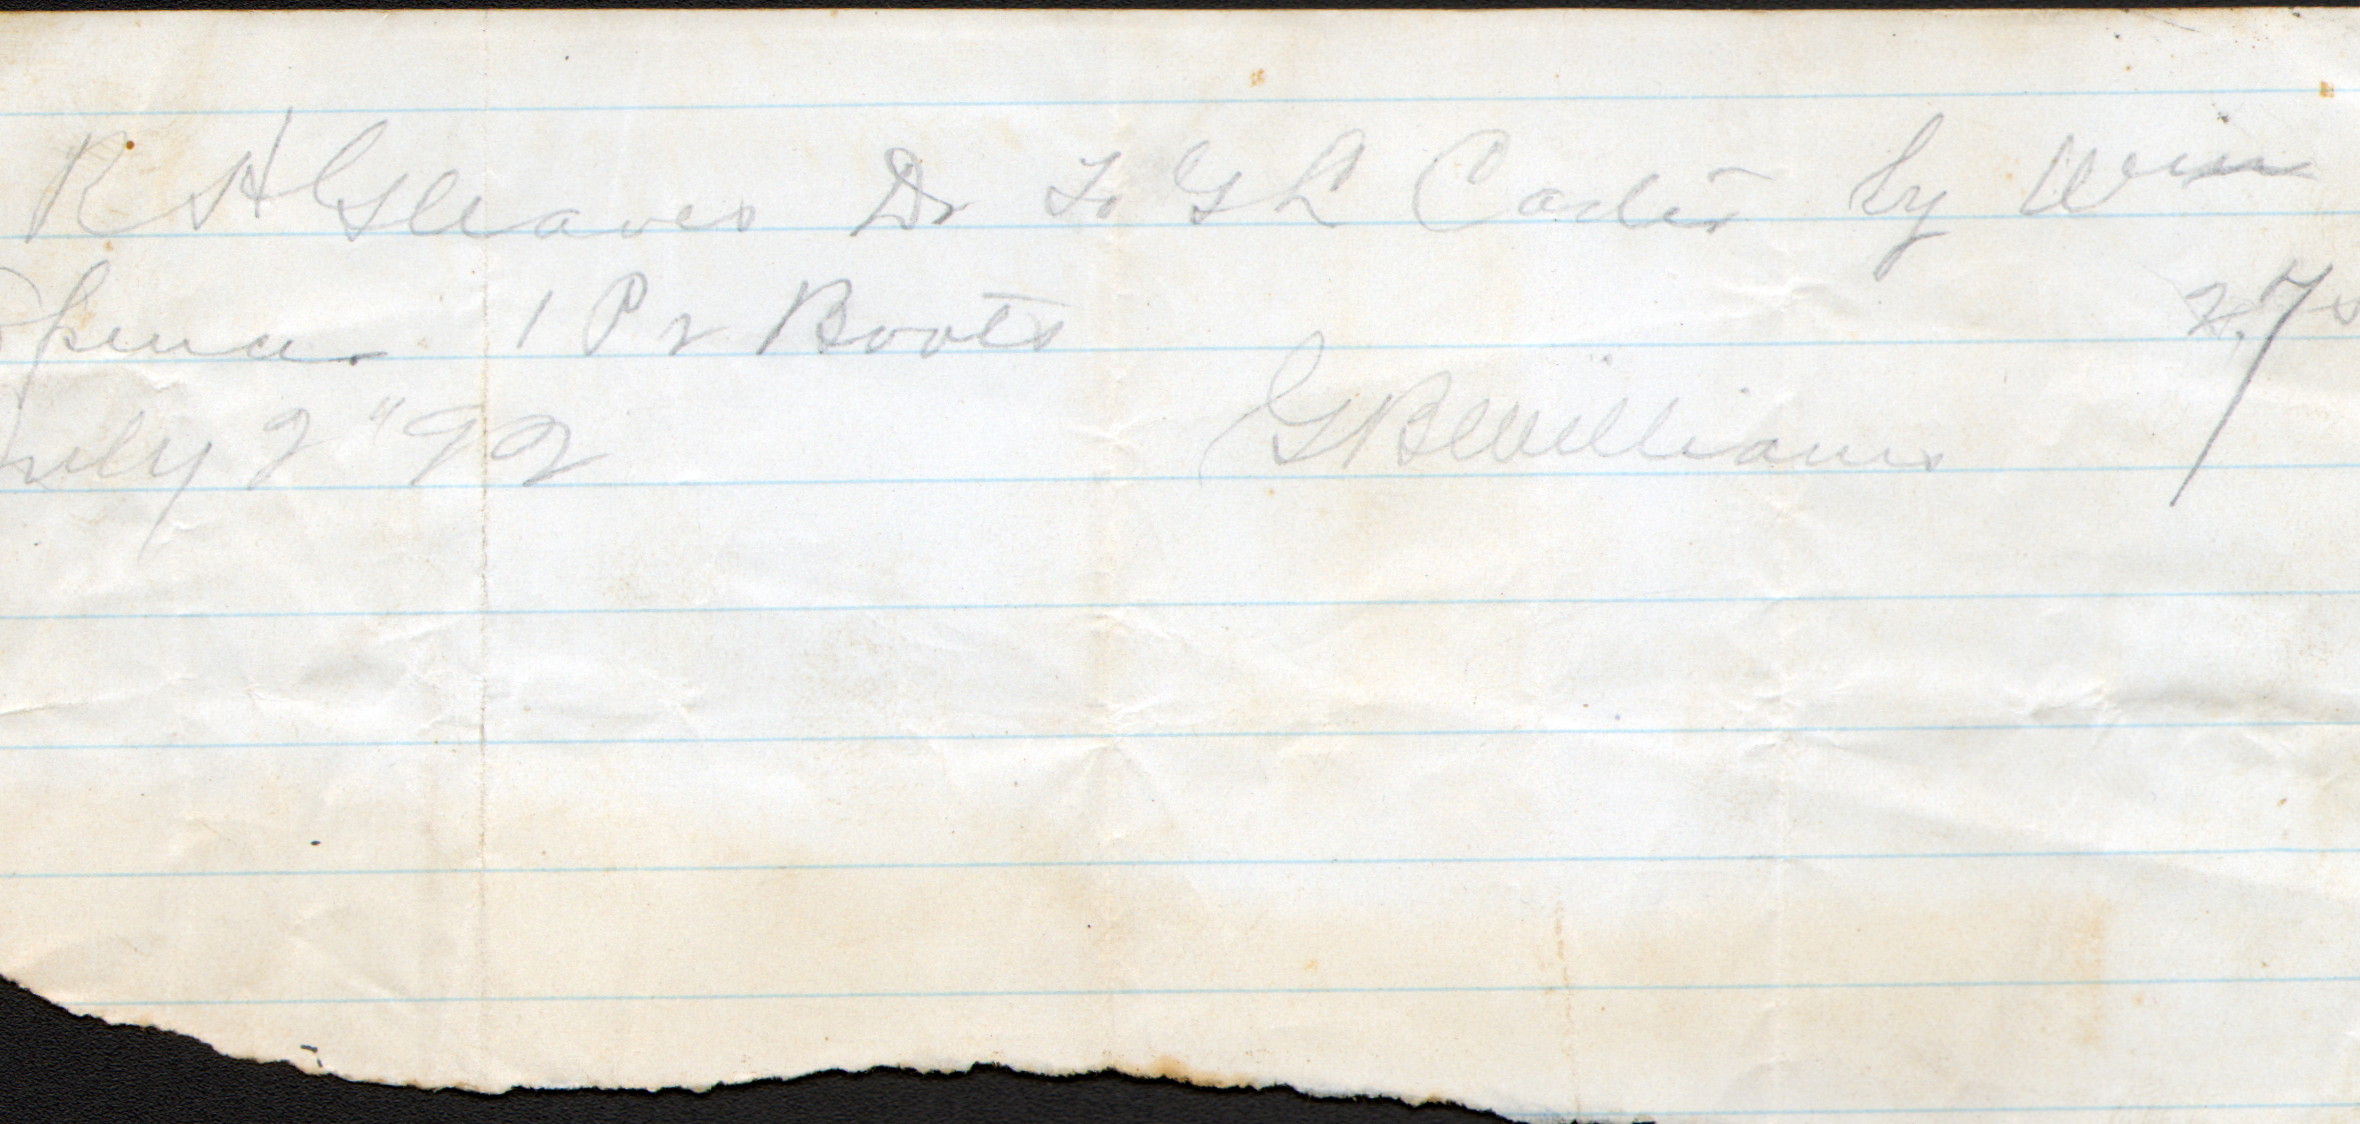 R H Gleaves Dr To G L Carter by Wm
1 Pr Boots 2.75
July 2" 92 G B Williams